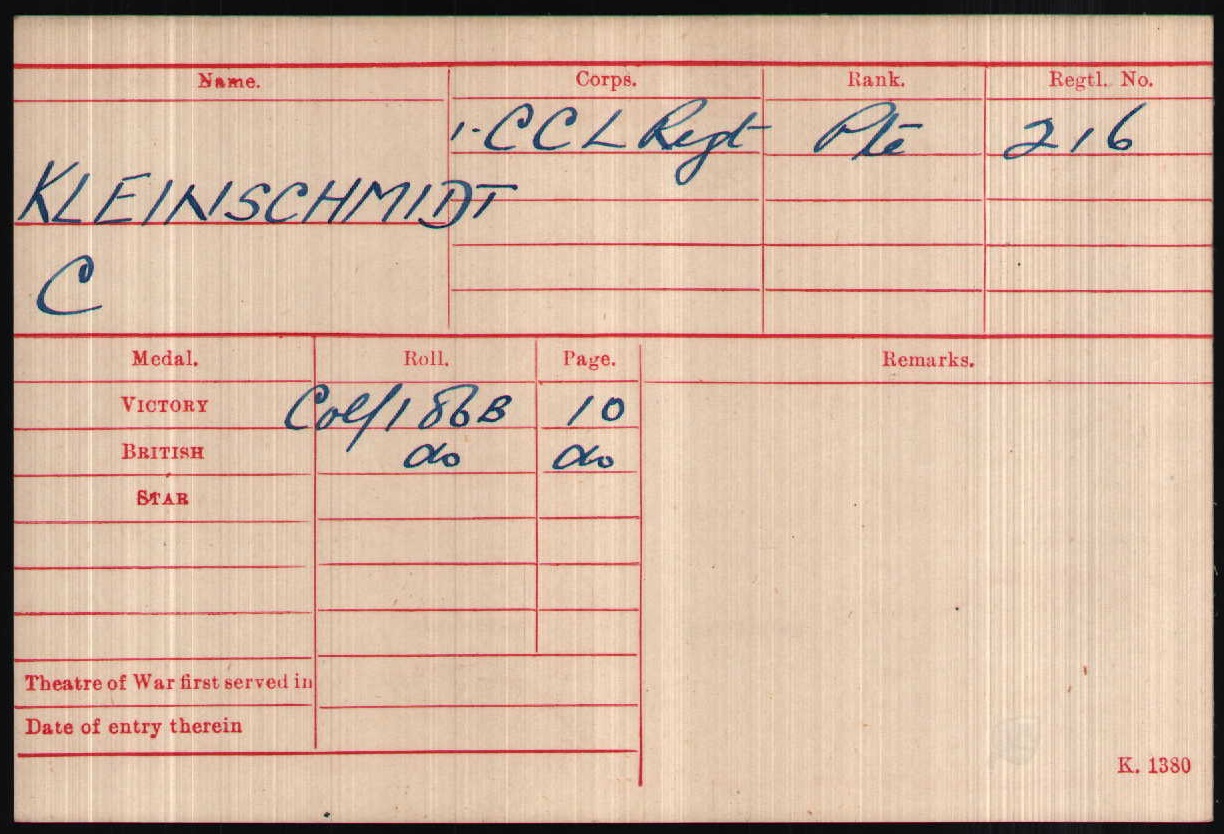 Name. Corps. Rank. Regtl. No.
1. C C L Regt Pte 216
KLEINSCHMIDT
C
Medal. Roll. Page. Remarks.
VICTORY Col/186B 10
BRITISH do do
STAR
Theatre of War first served in
Date of entry therein
K. 1380